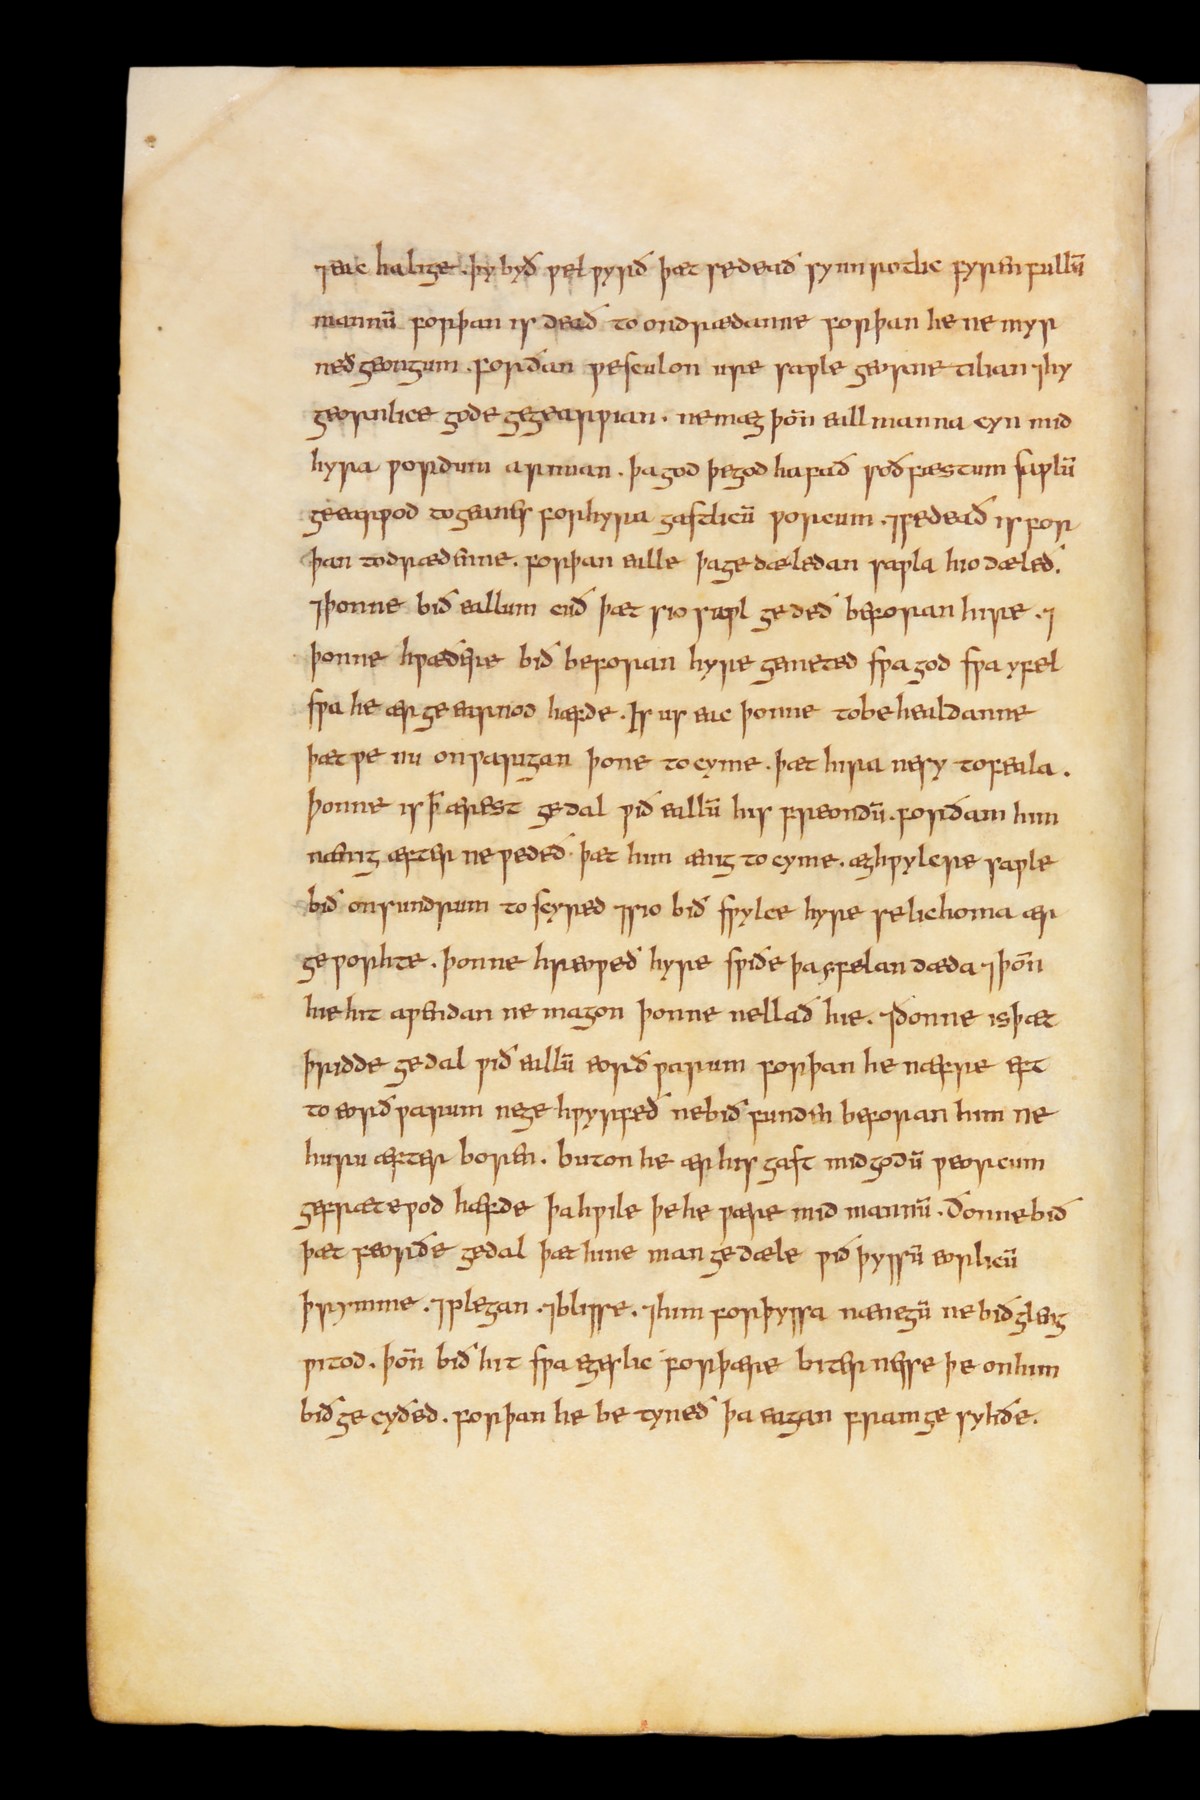 ⁊ eac halige. þy byð ƿel ƿyrð þæt se deað synn rotlic fyrenfullū
mannū forþan is deað to ondrædanne forþan he ne myr
neð geongum. forðan ƿe sculon ure saƿle georne tilian ⁊ hy
geornlice gode gegearƿian. ne mæg þoñ eall manna cyn mid
hyra ƿordum ariman. þa god þe god hafað soðfæstum saƿlū
gegearƿod togeanes for hyra gastlicū ƿorcum. ⁊ se deað is for
þan to drædenne. forþan ealle þa gedæledan saƿla hio dæleð.
⁊ þonne bið eallum cuð þæt sio saƿl gedeð beforan hire. ⁊
þonne hƿæðere bið beforan hyre gemeted sƿa god sƿa yfel
sƿa he ær geearnod hæfde. Is us eac þonne to behealdanne
þæt ƿe nu onƿarigan þone tocyme. þæt hira ne sy to feala.
Þonne is þ̄ ærest gedal ƿið eallū his freondū. forðam him
nænig æfter ne ƿedeð þæt him ænig to cyme. æghƿylcre saƿle
bið onsundrum to scyred ⁊ sio bið sƿylce hyre se lichoma ær
geƿorhte. þonne hreoƿeð hyre sƿiðe þa yfelan dæda ⁊ þoñ
hie hit aƿendan ne magon þonne nellað hie. ⁊ ðonne is þæt
þridde gedal ƿið eallū eorðƿarum forþan he næfre eft
to eorðƿarum ne gehƿyrfeð ne bið funden beforan him ne
huru æfter boren. buton he ær his gast mid godū ƿeorcum
gefræteƿod hæfde þa hƿile þe he ƿære mid mannū. Ðonne bið
þæt feorðe gedal þæt hine man gedæle ƿið þyssū eorlicū
þrymme. ⁊ plegan. ⁊ blisse. ⁊ him for þyssa nænegū ne bið gleng
ƿitod. þoñ bið hit sƿa egeslic for þære biternesse þe on him
bið gecyðed. forþan he betyneð þa eagan fram gesyhðe.